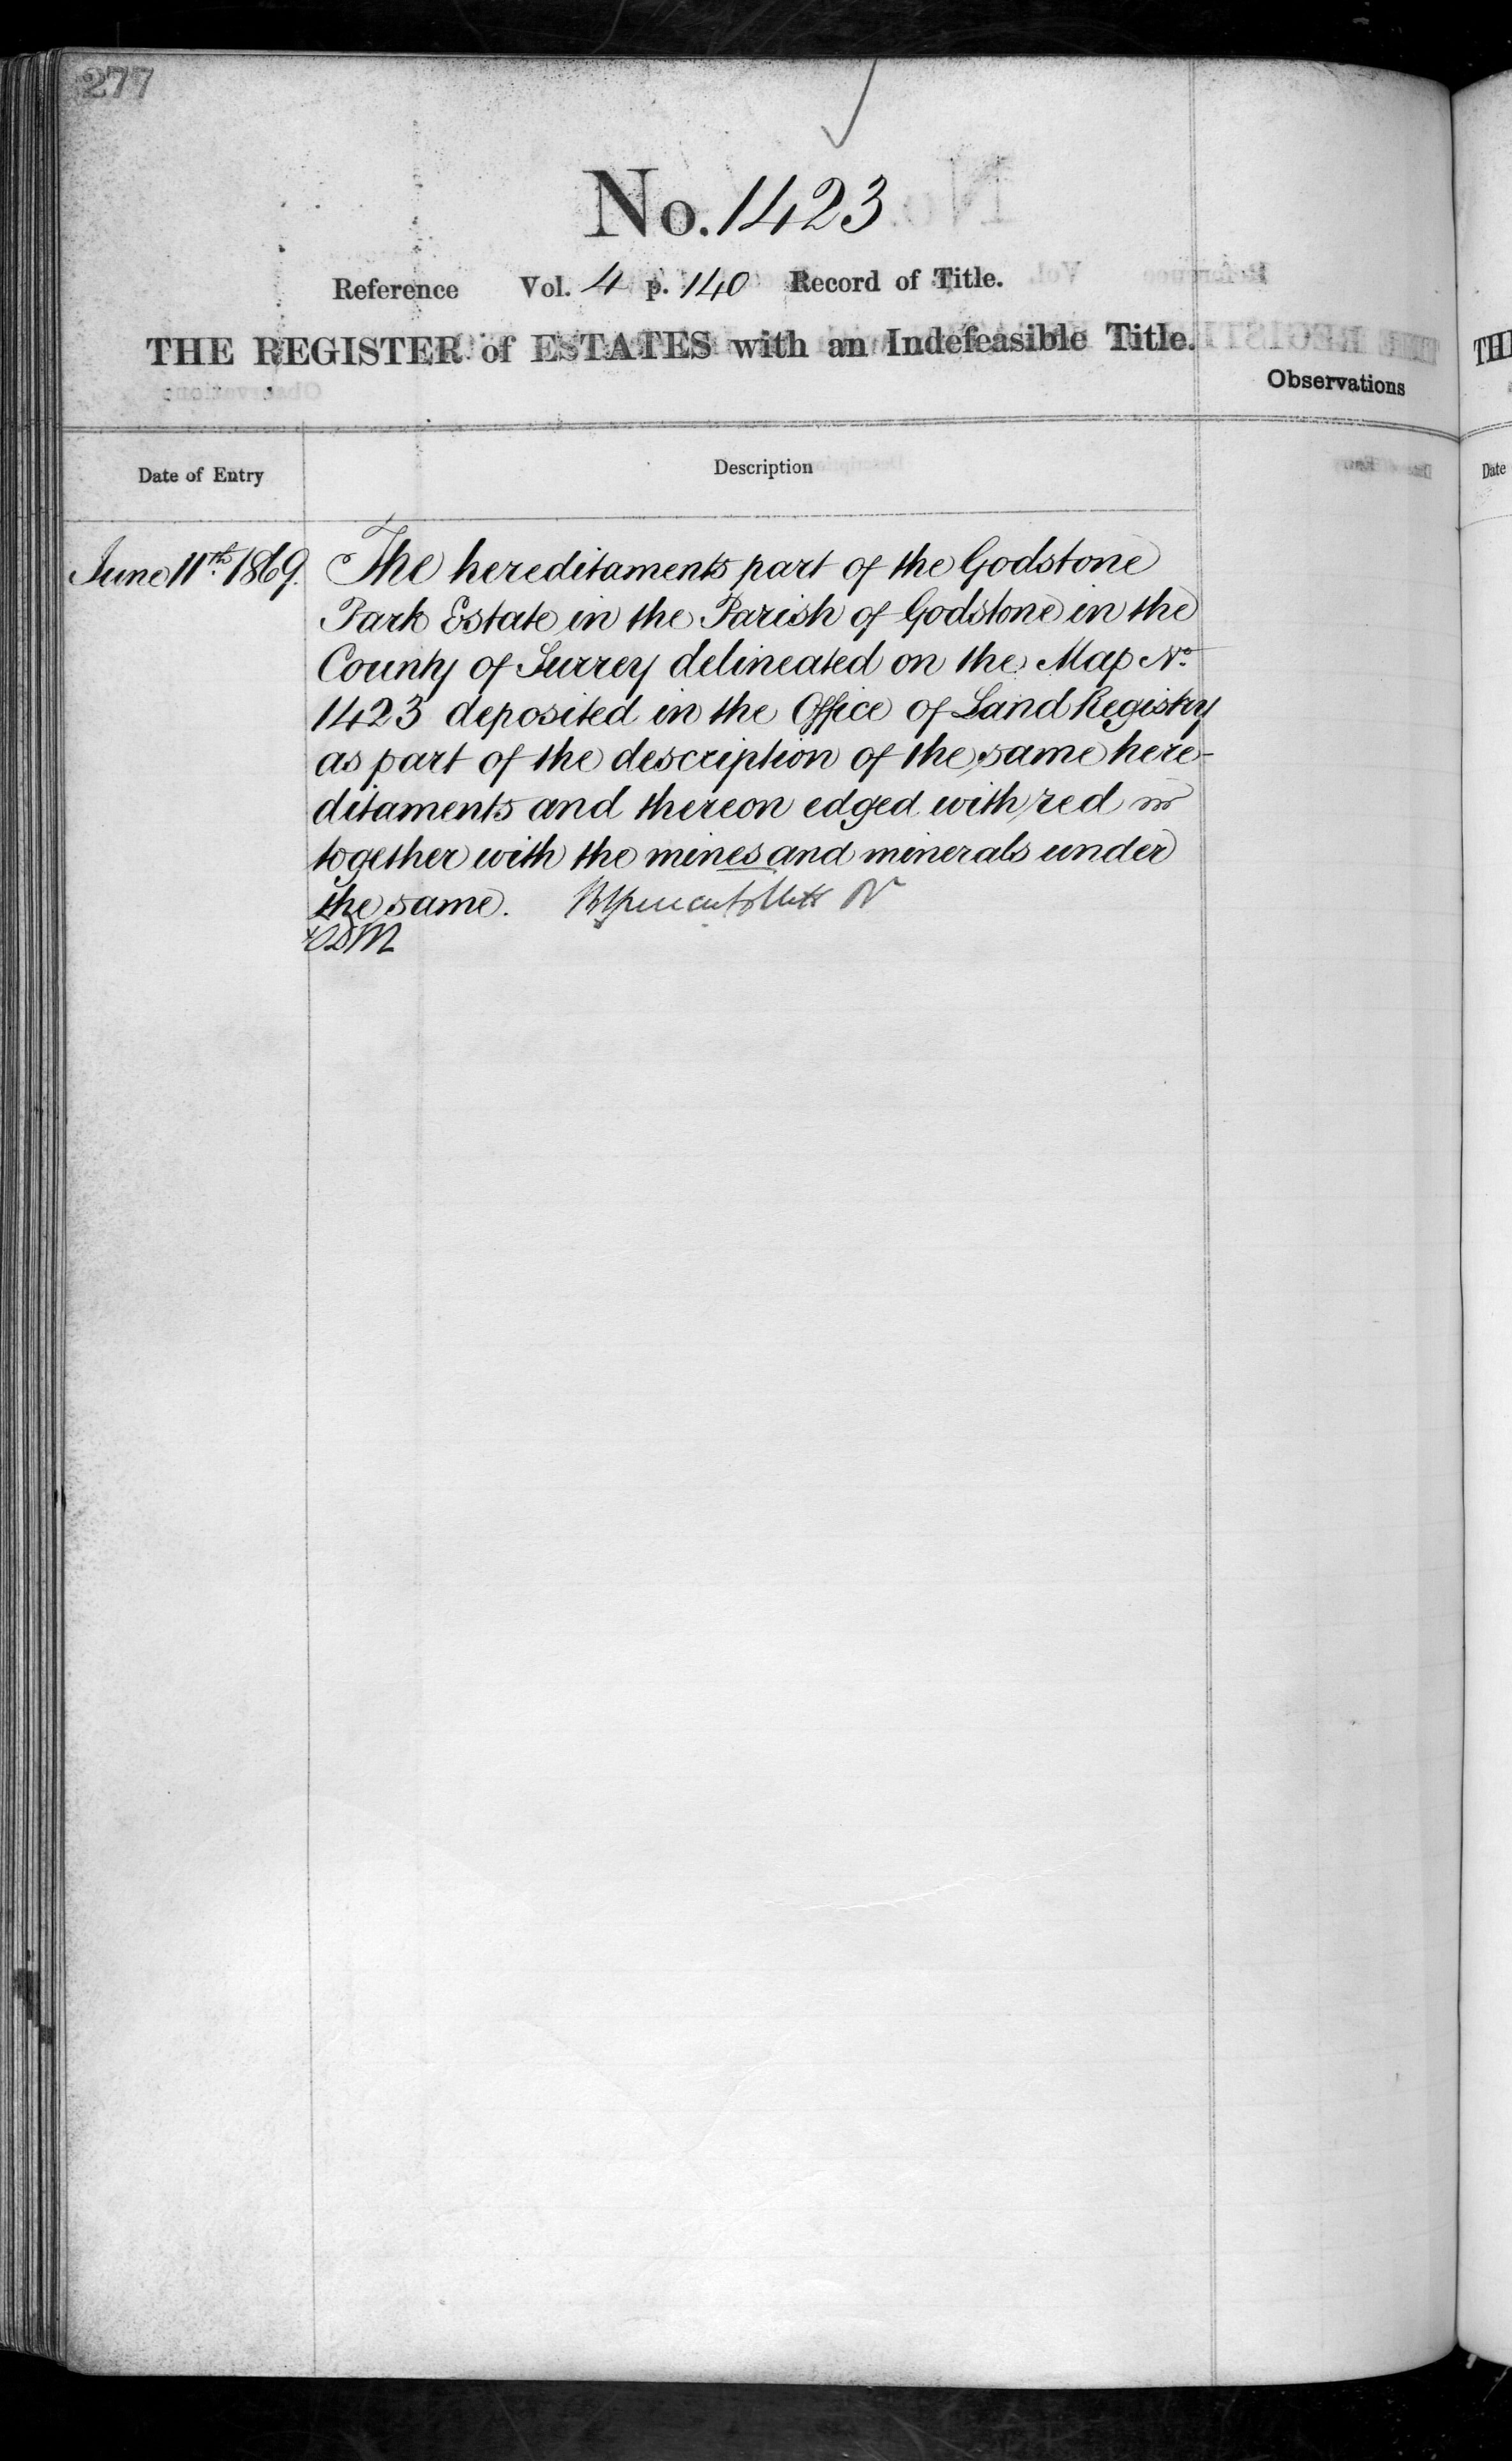 277
No. 1423
Reference Vol. 4 p. 140 Record of Title.
THE REGISTER of ESTATES with an Indefeasible Title.
Observations
Date of Entry
Description
June 11th 1869.
The hereditaments part of the Godstone
Park Estate in the Parish of Godstone in the
County of Surrey delineated on the Map No.
1423 deposited in the Office of Land Registry
as part of the description of the same here-
ditaments and thereon edged with red
together with the mines and minerals under
the same.
TH
Date